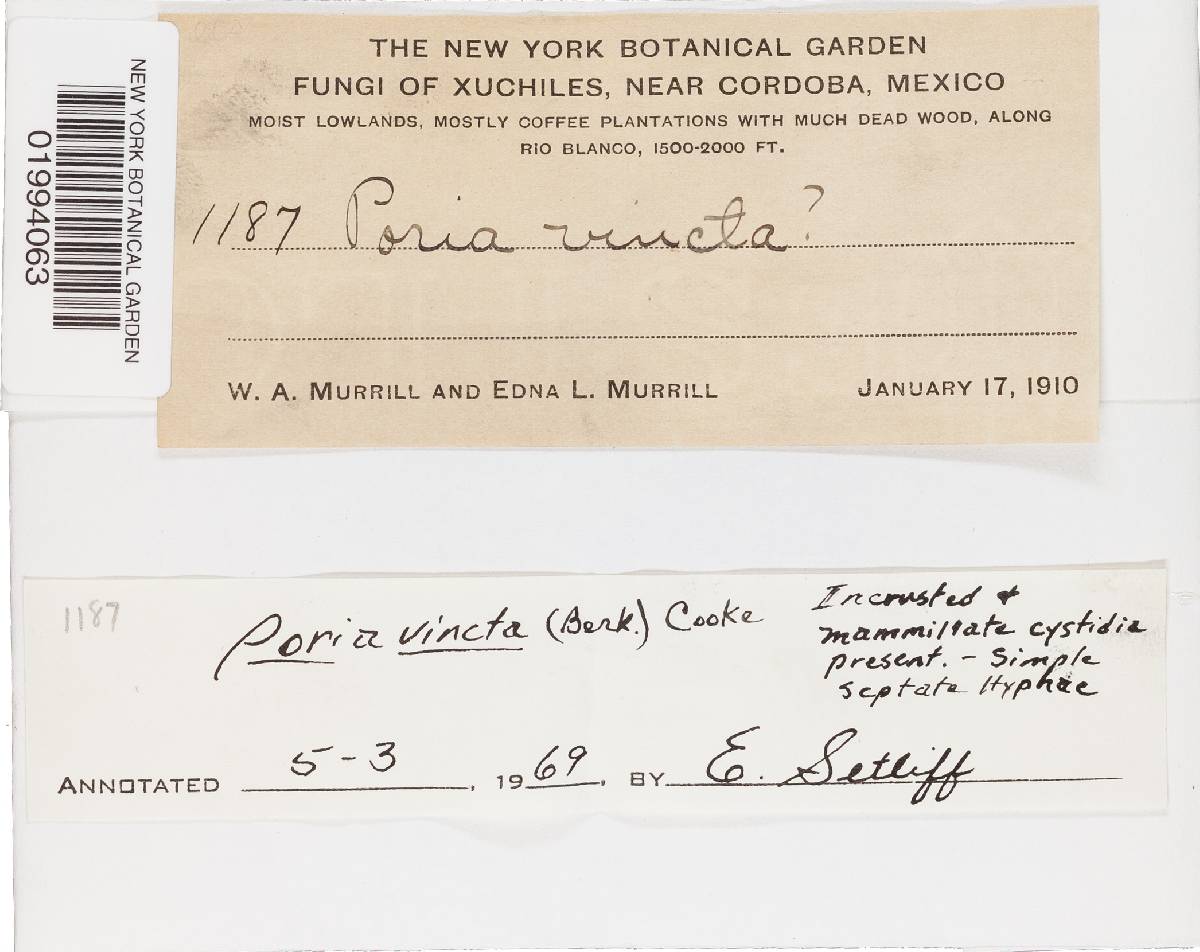 NEW YORK BOTANICAL GARDEN
01994063
THE NEW YORK BOTANICAL GARDEN
FUNGI OF XUCHILES, NEAR CORDOBA, MEXICO
MOIST LOWLANDS, MOSTLY COFFEE PLANTATIONS WITH MUCH DEAD WOOD, ALONG
RIO BLANCO, 1500-2000 FT.
1187 Poria vincta?
W. A. MURRILL AND EDNA L. MURRILL JANUARY 17, 1910
1187
Poria vincta (Berk.) Cooke
Incrusted &
mammillate cystidia
present. - Simple
septate Hyphae
ANNOTATED 5-3, 1969, BY E. Setliff